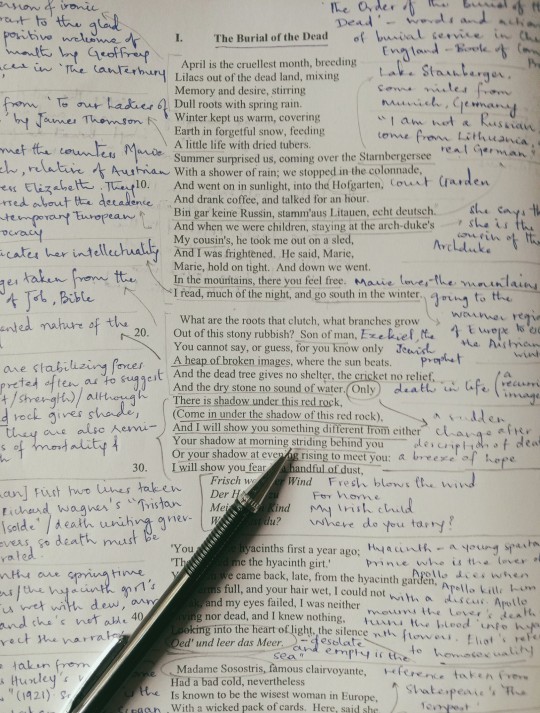 ersion of ironic
part to the glad
positive welcome of
month by Geoffrey
in 'The Canterbury
The Order of the Burial of the
Dead' - words and
of burial service in
England - Book of
I. The Burial of the Dead
April is the cruellest month, breeding
Lilacs out of the dead land, mixing
Memory and desire, stirring
Dull roots with spring rain.
Winter kept us warm, covering
Earth in forgetful snow, feeding
A little life with dried tubers.
Summer surprised us, coming over the Starnbergersee
10. With a shower of rain; we stopped in the colonnade,
And went on in sunlight, into the Hofgarten,
And drank coffee, and talked for an hour.
Bin gar keine Russin, stamm'aus Litauen, echt deutsch.
And when we were children, staying at the arch-duke's
My cousin's, he took me out on a sled,
And I was frightened. He said, Marie,
Marie, hold on tight. And down we went.
In the mountains, there you feel free.
I read, much of the night, and go south in the winter.
What are the roots that clutch, what branches grow
20. Out of this stony rubbish? Son of man,
You cannot say, or guess, for you know only
A heap of broken images, where the sun beats.
And the dead tree gives no shelter, the cricket no relief,
And the dry stone no sound of water. Only
There is shadow under this red rock,
(Come in under the shadow of this red rock),
And I will show you something different from either
Your shadow at morning striding behind you
Or your shadow at evening rising to meet you:
30. I will show you fear handful of dust,
Frisch Wind
Der
Kind
du?
'You hyacinths first a year ago;
me the hyacinth girl.'
we came back, late, from the hyacinth garden,
full, and your hair wet, I could not
and my eyes failed, I was neither
40 nor dead, and I knew nothing,
Looking into the heart of light, the silence
Oed' und leer das Meer.
Madame Sosostris, famous clairvoyante,
Had a bad cold, nevertheless
Is known to be the wisest woman in Europe,
With a wicked pack of cards. Here, said she
from 'To our Ladies of
by James Thomson
met the countess Marie
relative of Austrian
Elizabeth. They
about the decadence
temporary European
ocracy
icates her intellectuality
taken from the
of Job, Bible
ented nature of the
are stabilizing forces
preted often as to suggest
/strength)/although
rock gives shade,
they are also remi-
s of mortality &
First two lines taken
Richard Wagner's "Tristan
Isolde"/death uniting
overs so death must be
rated.
are springtime
/the hyacinth girl's
is wet with dew,
and she's not
the narrator
taken from
Huxley's
"(1921)
the
Lake Starnberger.
some miles from
Munich, Germany
"I am not a Russian
come from Lithuania,
real German"
Court Garden
she says
she is the
cousin of the
Archduke
Marie loves the mountains
going to the
warmer
of Europe to
the Austrian
Ezekiel, the
Jewish
prophet
death in life (a
image
a sudden
change after
description of
a breeze of hope
Fresh blows the wind
For home
My Irish child
Where do you tarry?
Hyacinth - a young
prince who is the lover of
Apollo dies when
Apollo kills him
with a discus. Apollo
mourns the lover's death
turns the blood into
flowers. Eliot's
to homosexuality
- desolate
and empty is the
sea"
reference taken from
Shakespeare's 'The
Tempest'